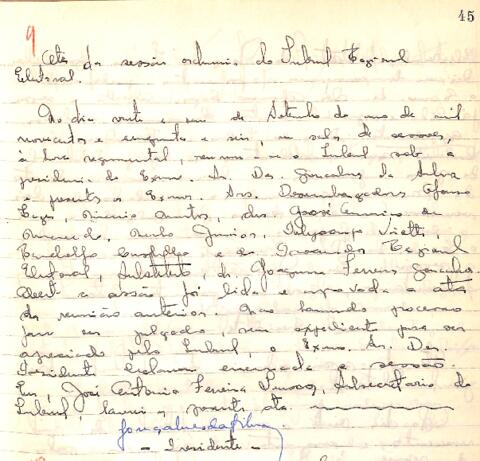 45
9
Ata da sessão ordinaria do Tribunal Regional
Eleitoral.
No dia vinte e um de Setembro do ano de mil
novecentos e cinquenta e seis, na sala de sessões,
à hora regimental, reuniu-se o Tribunal sob a
presidencia do Exmo. Sr. Des. Gonçalves da Silva
e presentes os Exmos. Srs. Desembargadores Afonso
Lages, Onofre Mendes, drs. José Americo de
Macedo, Melo Junior,
e do Procurador Regional
Eleitoral, Substituto, dr. Joaquim Ferreira Gonçalves.
Aberta a sessão foi lida e aprovada a ata
da reunião anterior. Não havendo processo
para ser julgado, nem expediente para ser
apreciado pelo Tribunal, o Exmo. Sr. Des.
Presidente declarou encerrada a sessão.
Eu, José Antonio Ferreira, Subsecretario do
Tribunal, lavrei a presente ata.
Gonçalves da Silva
- Presidente -